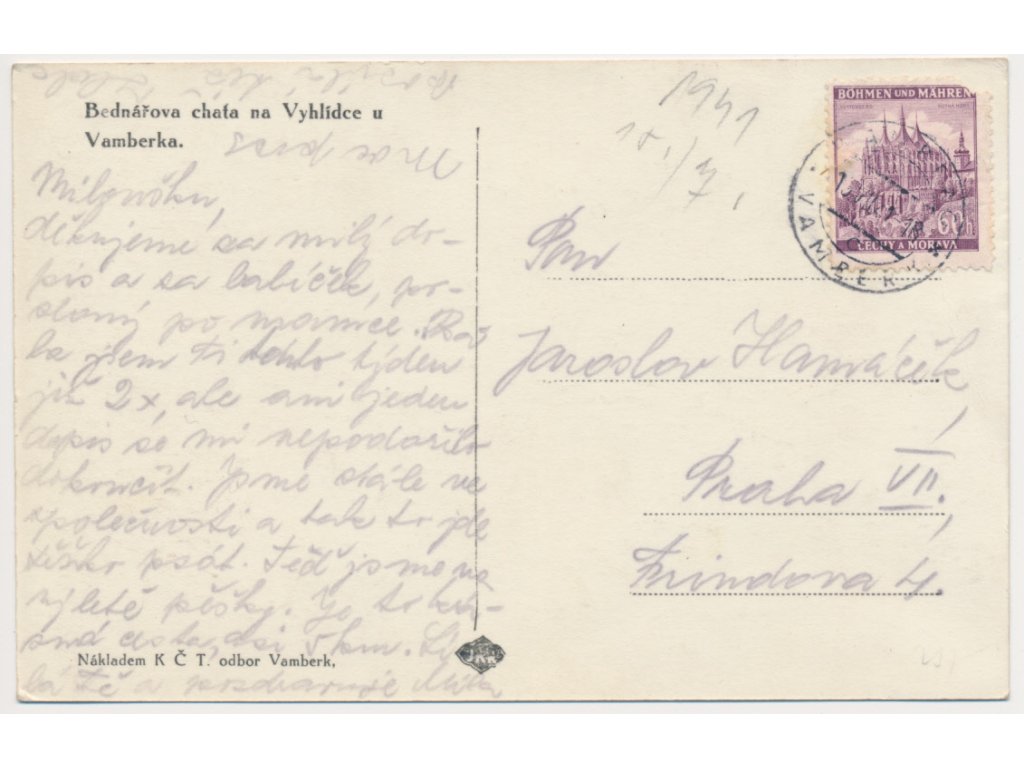 Bednářova chata na Vyhlídce u
Vamberka.
Miloušku,
děkujeme za milý do-
pis a za balíček, po-
slaný po mamce. Psa
la jsem ti tento týden
již 2x, ale ani jeden
dopis se mi nepodařilo
dokončit. Jsme stále ve
společnosti a tak to jde
těžko psát. Teď jsme na
výletě pěšky. Je to krá-
sná cesta, asi 5 km. Lí
bá tě a pozdravuje Míla
Nákladem K Č T. odbor Vamberk,
1941
18./7.
BÖHMEN UND MÄHREN
60h
ČECHY A MORAVA
VAMBERK
Pan
Jaroslav Hamáček
Praha VII.
Frindova 4.